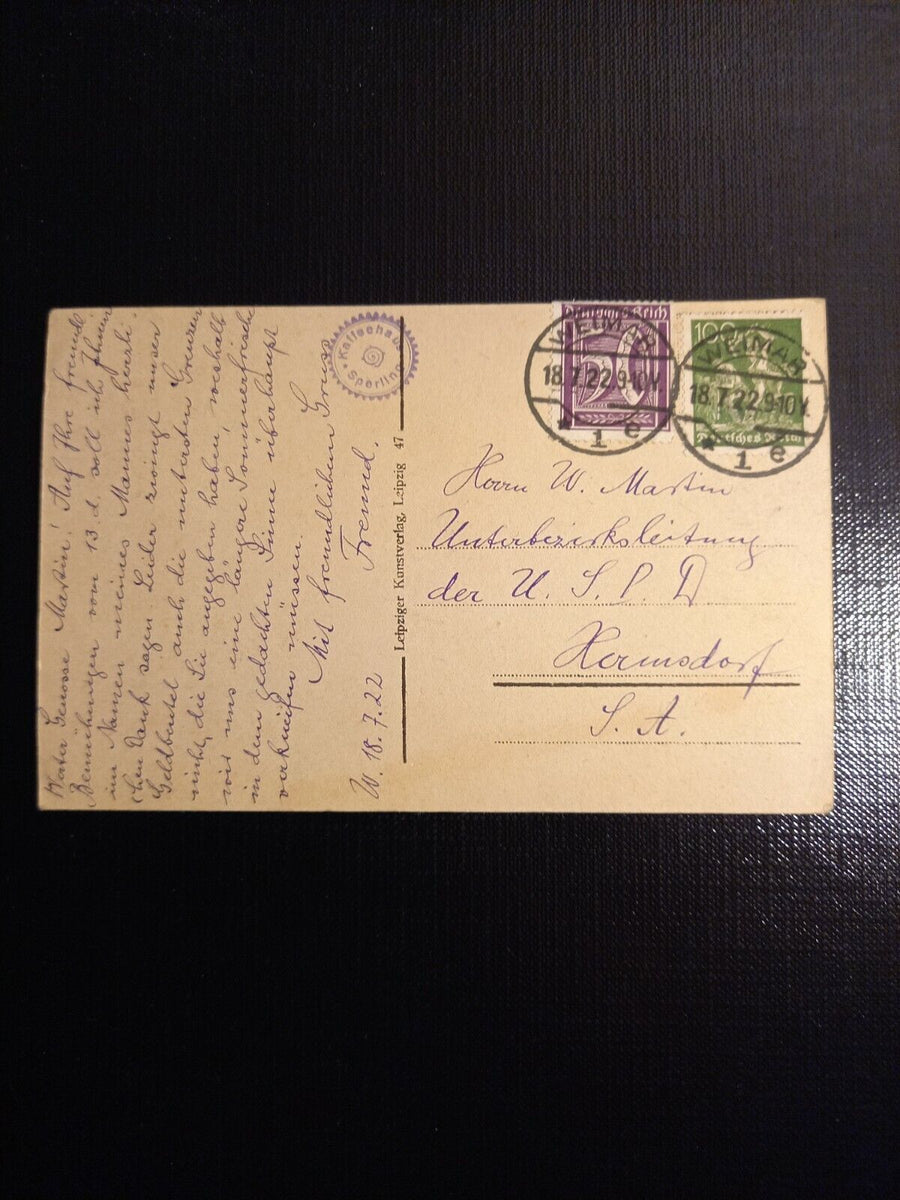 Werter Genosse Martin! Auf Ihre freundl.
Bemühungen vom 13. d. soll ich Ihnen
im Namen meines Mannes herzli-
chen Dank sagen. Leider zwingt unser
Geldbeutel auch die untersten Grenzen
nicht, die Sie angegeben haben, weshalb
wir uns eine längere Sommerfrische
in dem gedachten Sinne überhaupt
verkneifen müssen.
Mit freundlichen Gruss
Fremd.
W. 18.7.22
Kaffeehaus
Sperling
Leipziger Kunstverlag, Leipzig 47
Deutsches Reich
50
WEIMAR
18.7.22.9-10V.
* 1 e
100
Deutsches Reich
WEIMAR
18.7.22.9-10V.
* 1 e
Herrn W. Martin
Unterbezirksleitung
der U. S. P. D
Hermsdorf
S. A.